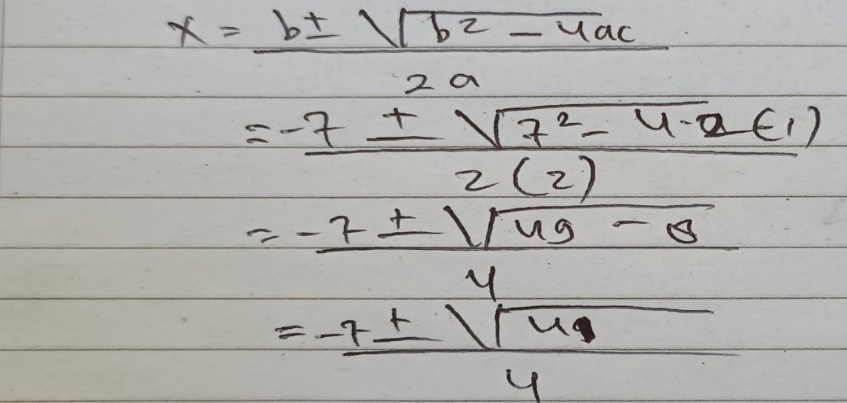 x = b ± √(b² - 4ac)
2a
= -7 ± √(7² - 4·2(-1))
2(2)
= -7 ± √(49 - 8)
4
= -7 ± √41
4